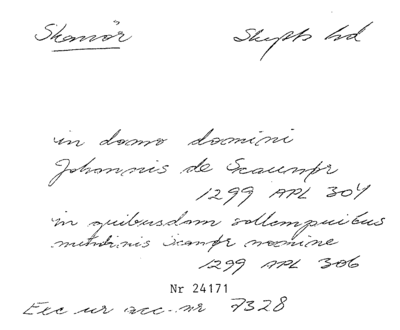 Skanör Skytts hd
in domo domini
Johannis de Scaunør
1299 APL 304
in quibusdam sollempnibus
nundinis Scanør nomine
1299 APL 306
Nr 24171
Exc ur acc. nr 7328